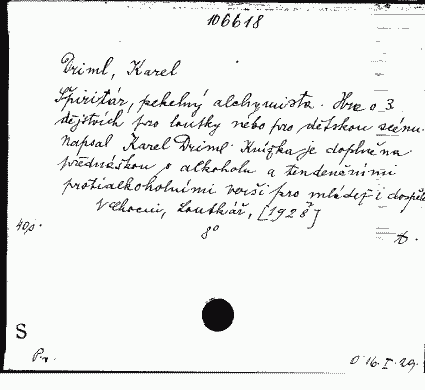 106618
Driml, Karel
Spiritár, pekelný alchymista. Hra o 3
dějstvích pro loutky nebo pro dětskou scénu.
Napsal Karel Driml. Knížka je doplněna
přednáškou o alkoholu a tendenčními
protialkoholními verši pro mládež i dospělé
Choceni, Loutkář, [1928]
40,-
8°
S
Pr.
D 16.I.29.